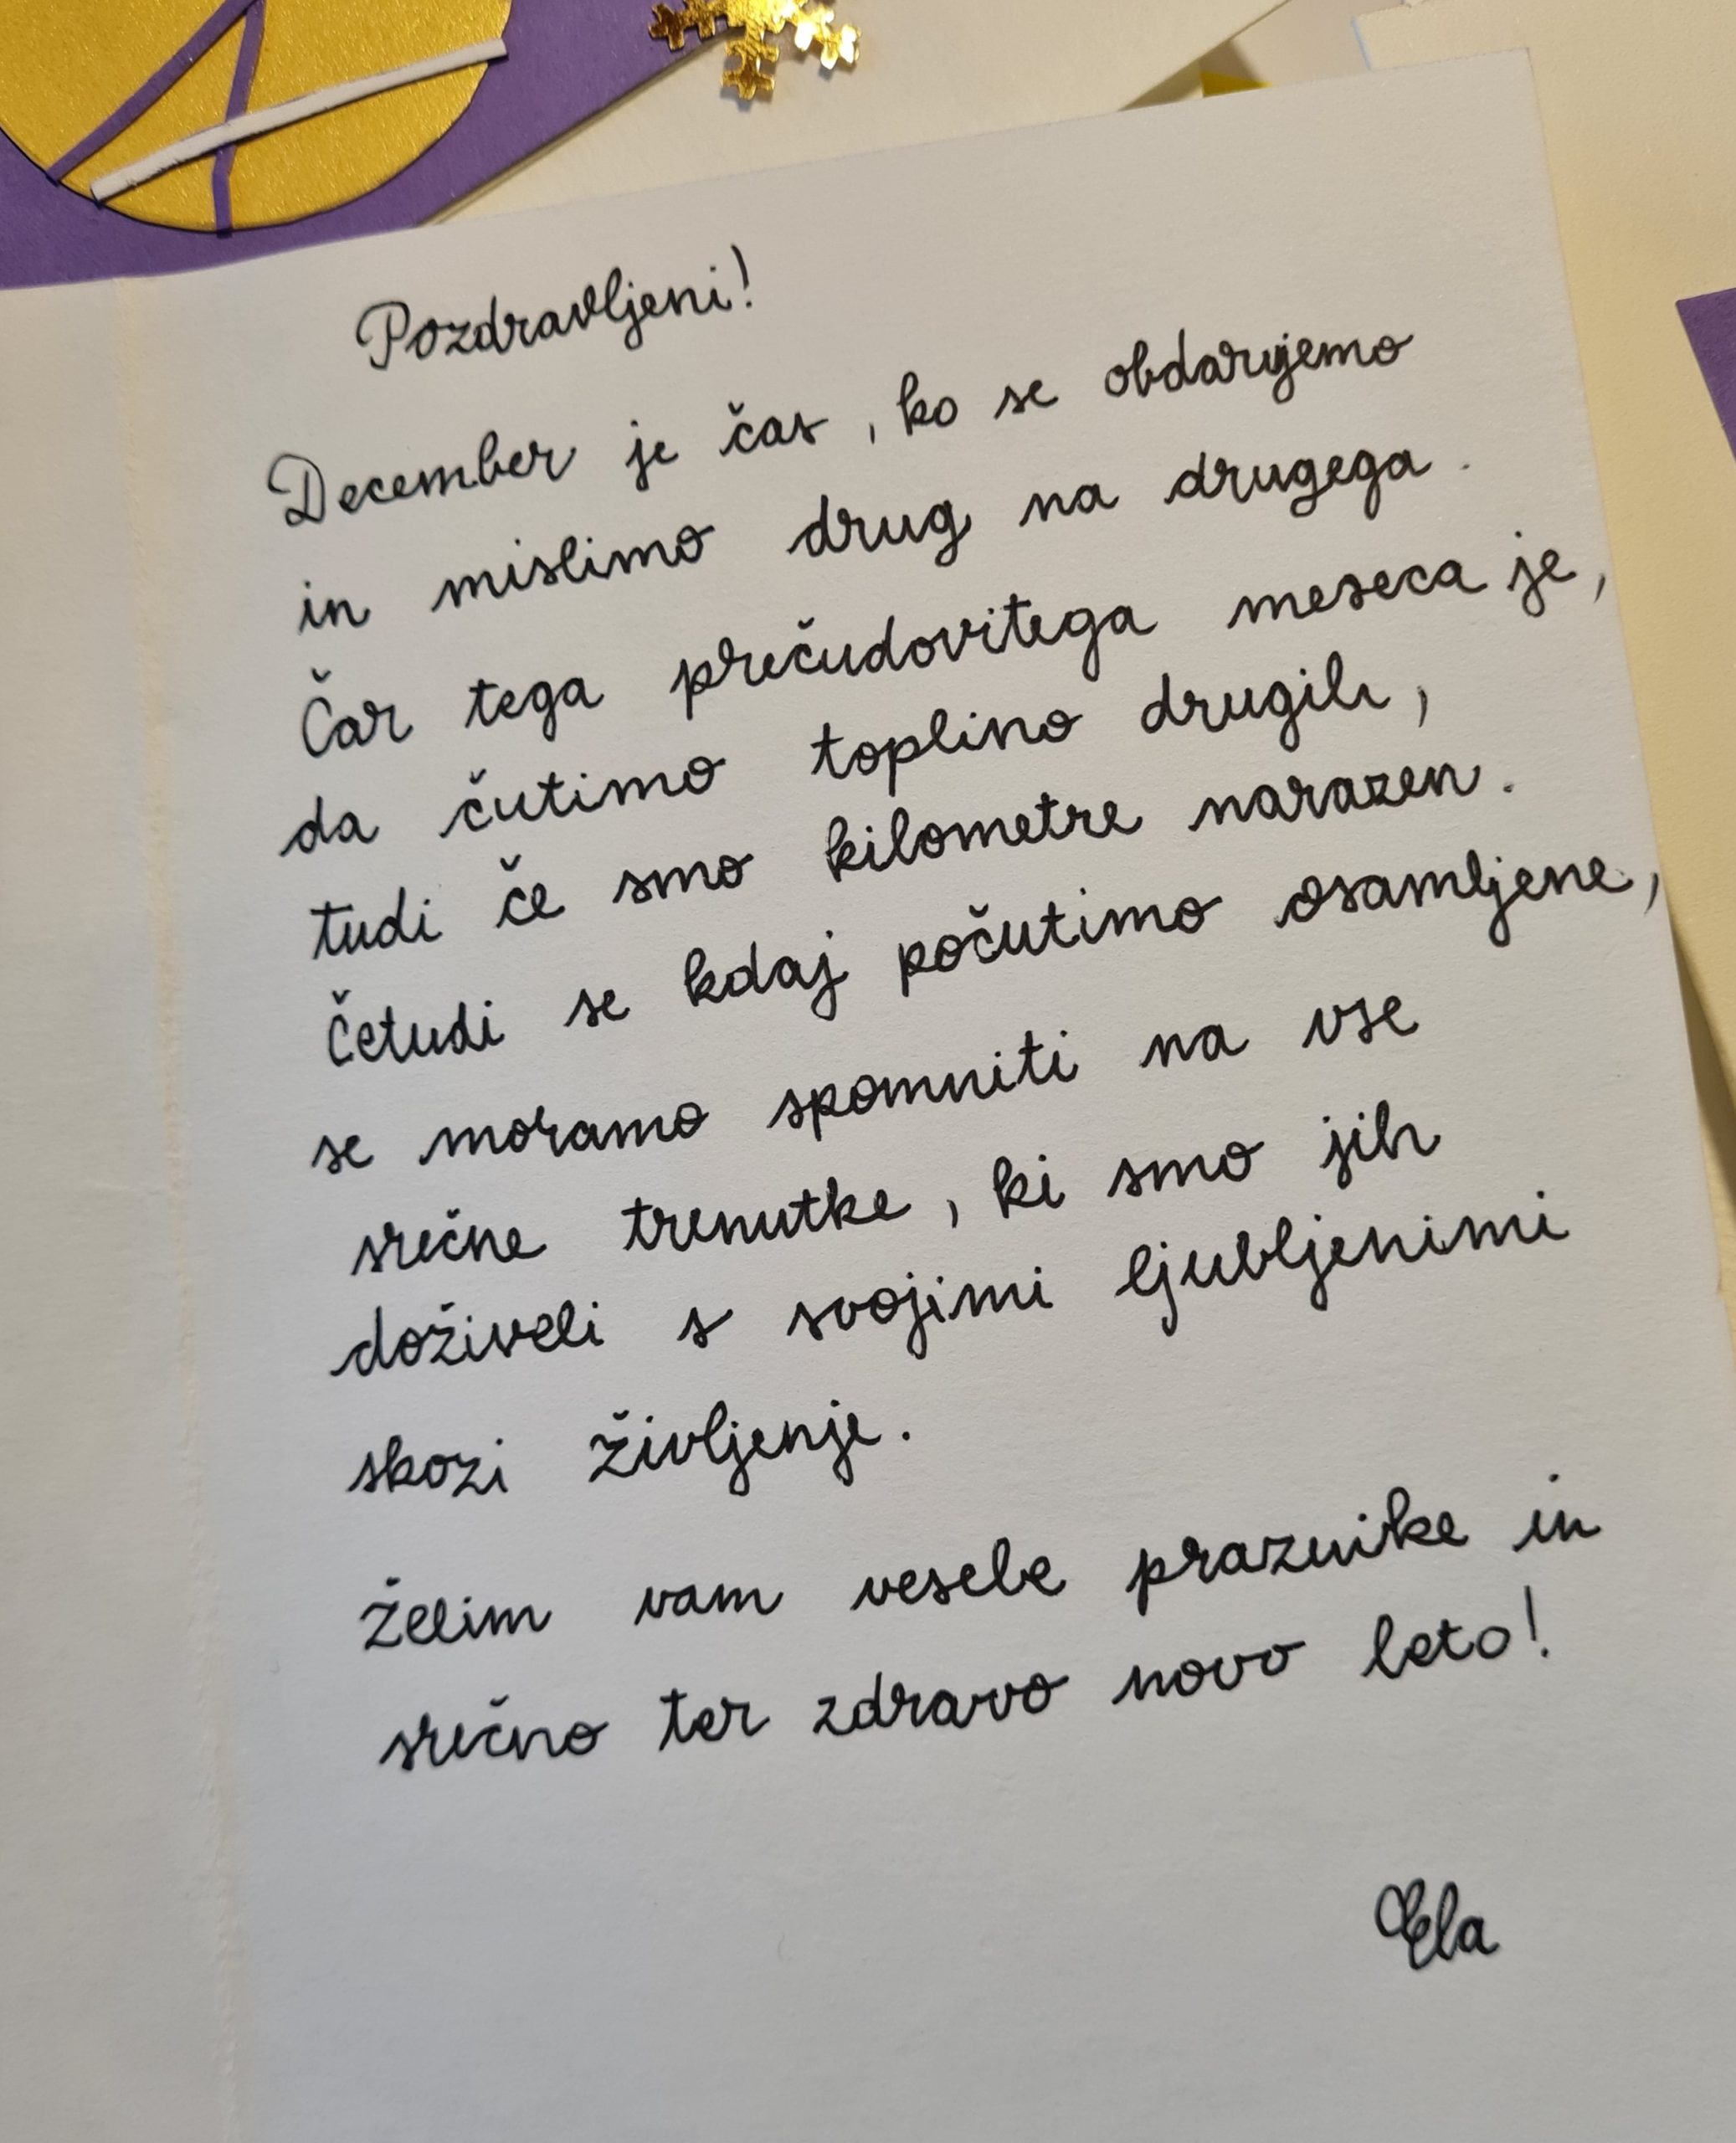 Pozdravljeni!
December je čas, ko se obdarujemo
in mislimo drug na drugega.
Čar tega prečudovitega meseca je,
da čutimo toplino drugih,
tudi če smo kilometre narazen.
Četudi se kdaj počutimo osamljene,
se moramo spomniti na vse
srečne trenutke, ki smo jih
doživeli s svojimi ljubljenimi
skozi življenje.
Želim vam vesele praznike in
srečno ter zdravo novo leto!
Ela